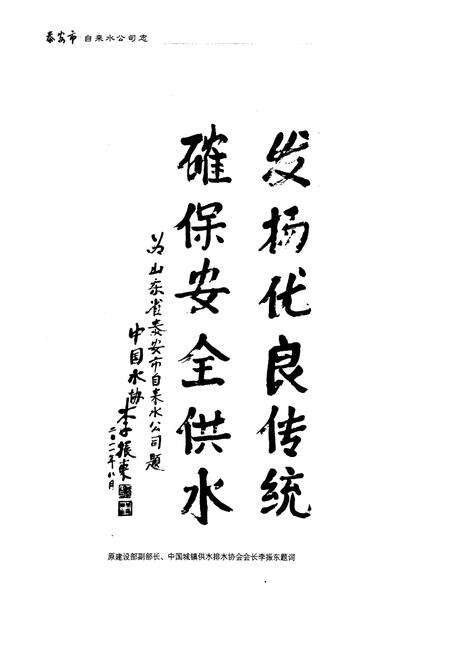 泰安市 自来水公司志
发扬优良传统
確保安全供水
为山东省泰安市自来水公司题
中国水协
李振东
二〇一一年八月
原建设部副部长、中国城镇供水排水协会会长李振东题词